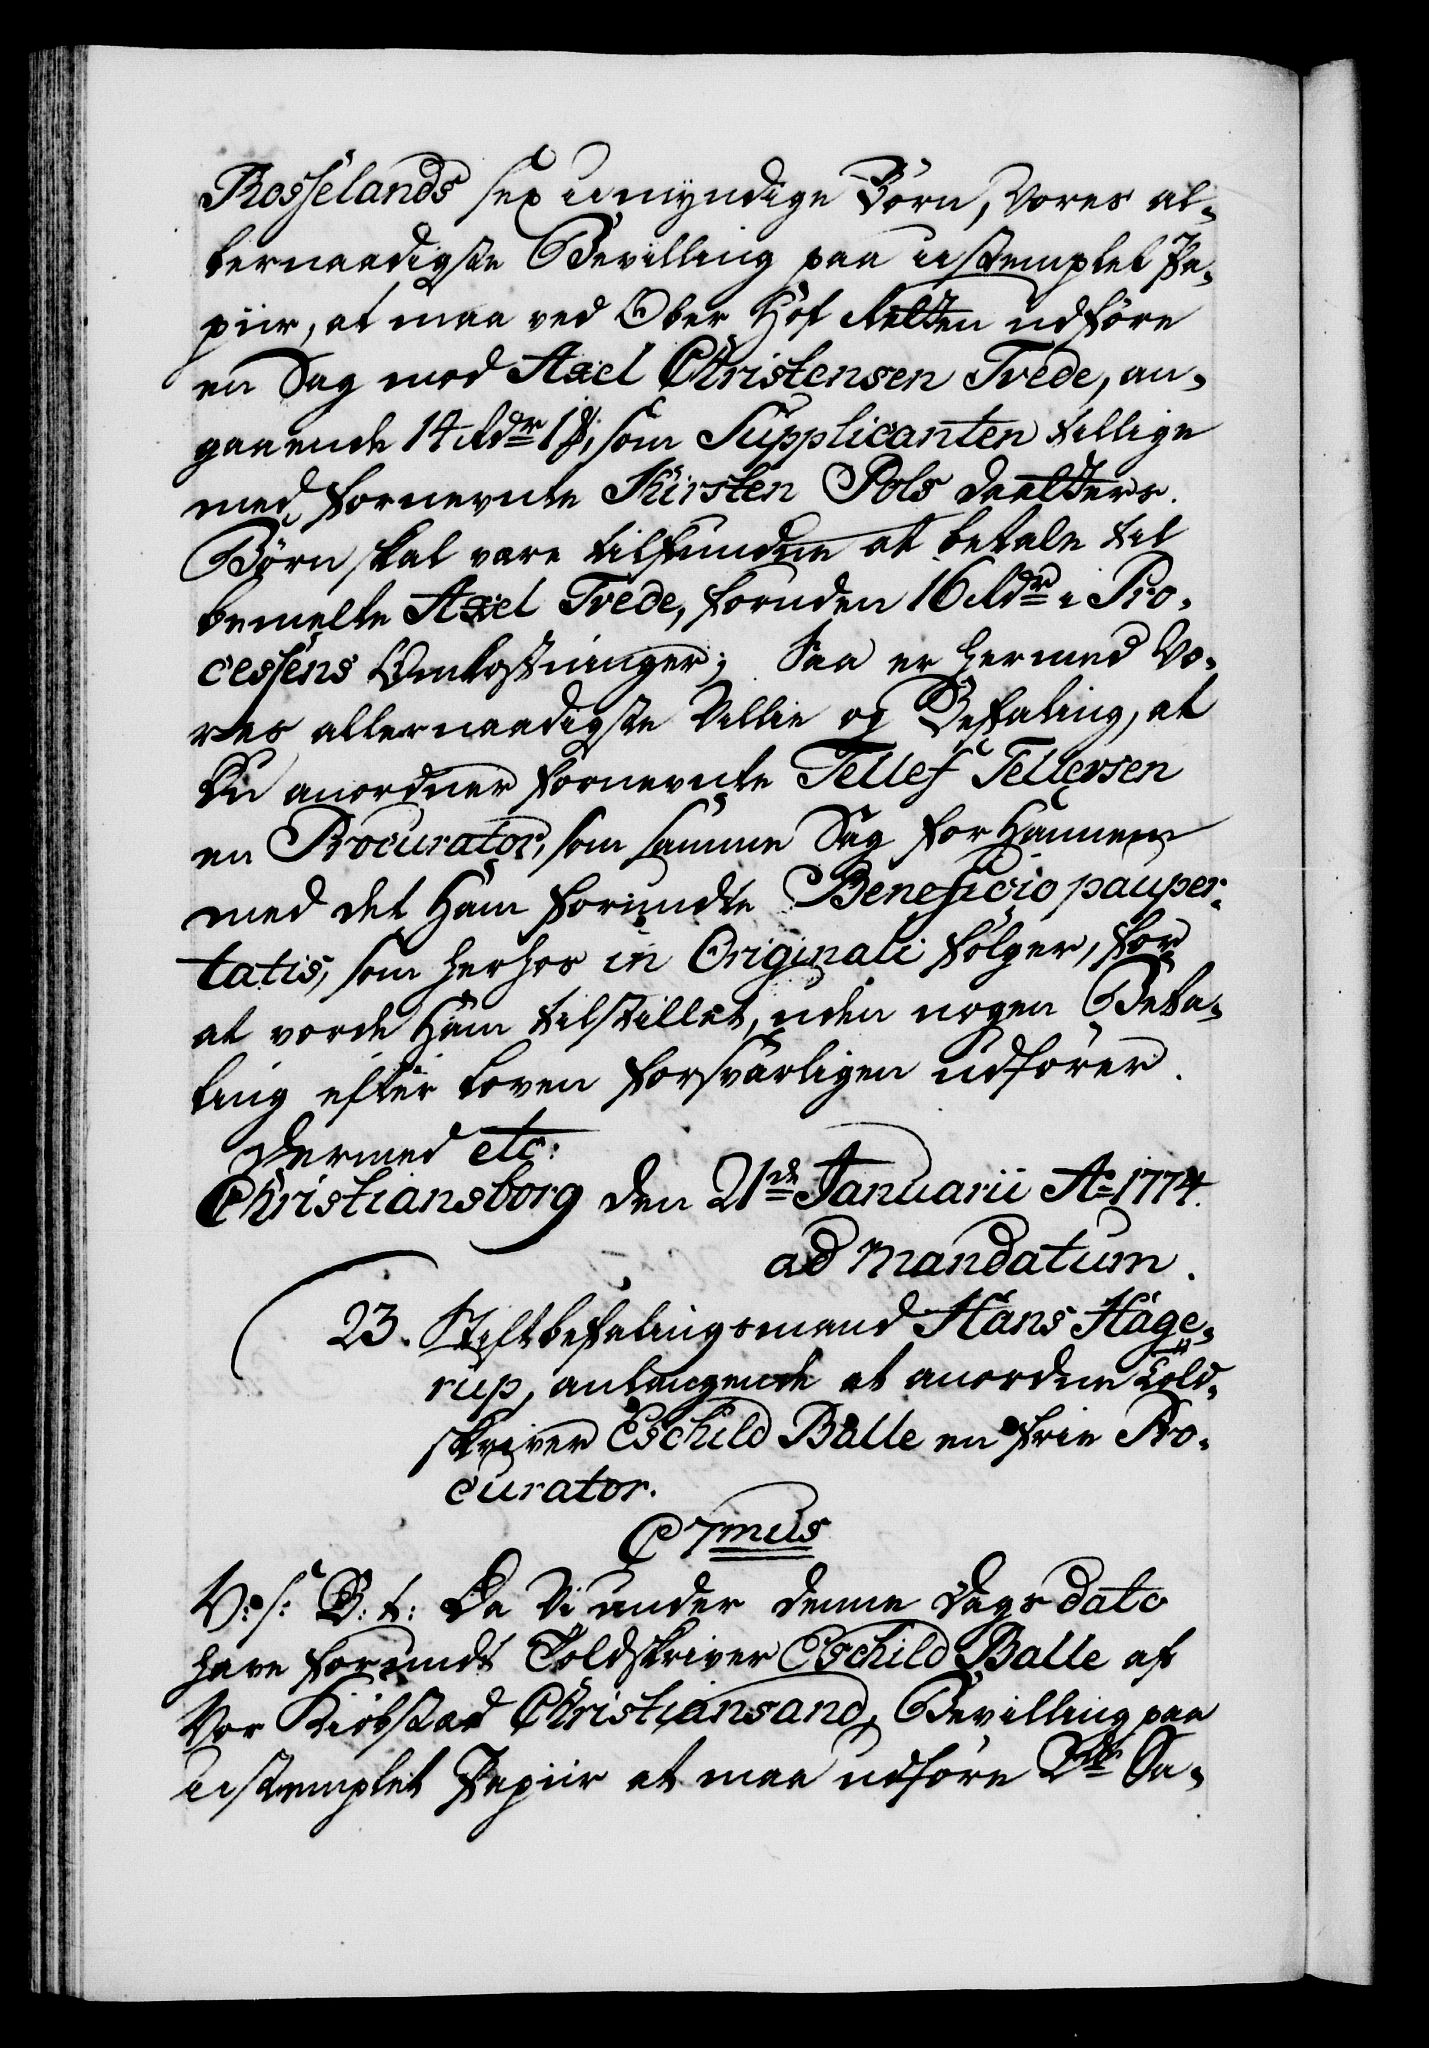 Rosselands sex umyndige Børn, Vores al-
lernaadigste Bevilling paa ustemplet Pa-
piir, at maa ved Ober Hof Retten udføre
en Sag mod Axel Christensen Trede, an-
gaaende 14 Rdr 1 ß, som Supplicanten tillige
med fornevnte Kirsten Pols Daatters
Børn skal være tilfunden at betale til
bemelte Axel Trede, foruden 16 Rdr i Pro-
cessens Omkostninger; Saa er hermed Vo-
res allernaadigste Villie og Befaling, at
Du anordner fornevnte Tellef Tellersen
en Procurator, som samme Sag for Hannem
med det Ham forundte Beneficio pauper-
tatis, som herhos in Originali følger, for
at vorde Ham tilstillet, uden nogen Beta-
ling efter Loven forsvarligen udfører.
Dermed etc:
Christiansborg den 21de Januarii Ao 1774.
ad Mandatum.
23. Stiftbefalingsmand Hans Hage-
rup, anlangende at anordne Told-
skriver Eschild Balle en frie Pro-
curator.
C 7mus
V: s: G: t: Da Vi under denne Dags dato
have forundt Toldskriver Eschild Balle af
Vor Kiøbstad Christiansand, Bevilling paa
ustemplet Papiir at maa udføre 2de Sa-